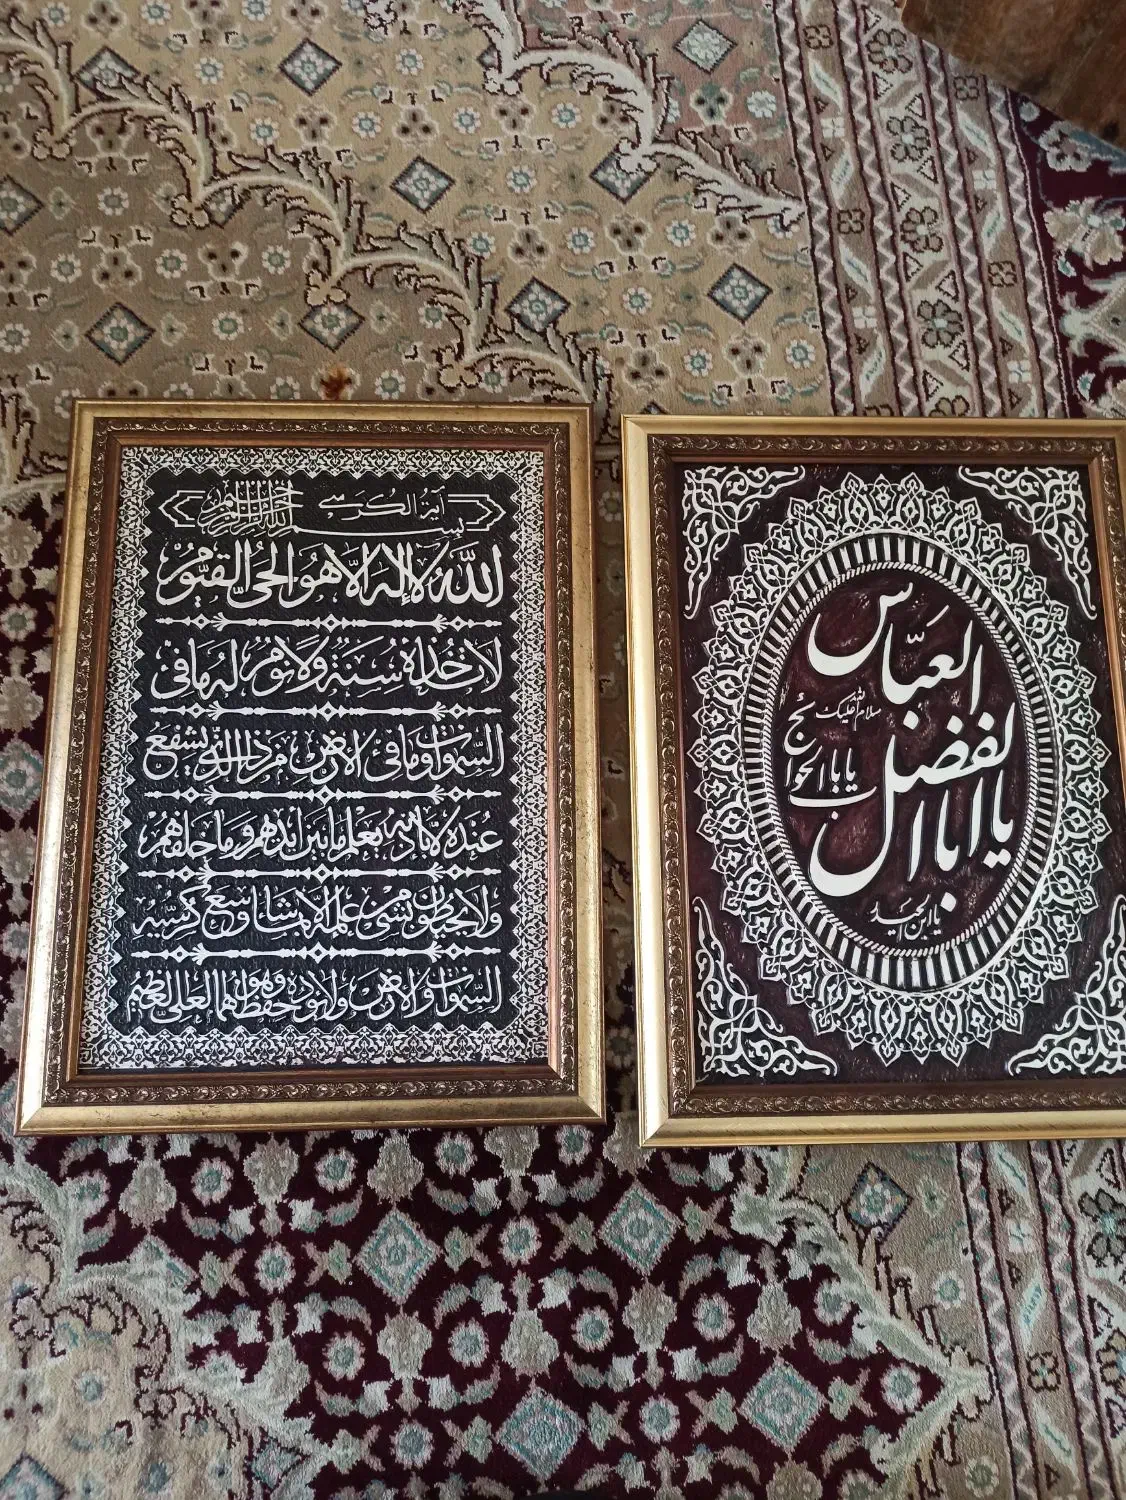 آية الكرسي
بسم الله الرحمن الرحيم
الله لا إله إلا هو الحي القيوم
لا تأخذه سنة ولا نوم له ما في
السموات وما في الارض من ذا الذي يشفع
عنده إلا باذنه يعلم ما بين أيديهم وما خلفهم
ولا يحيطون بشيء من علمه إلا بما شاء وسع كرسيه
السموات والارض ولا يؤده حفظهما وهو العلي العظيم
يا ابا الفضل العباس
سلام الله علیک
یا باب الحوائج